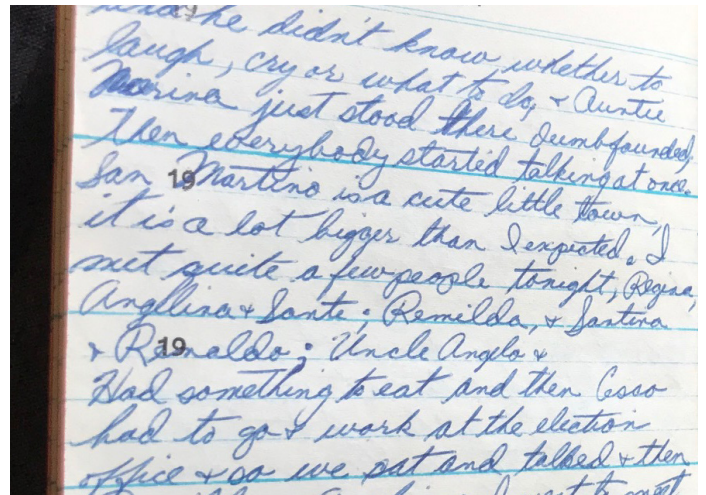 he didn't know whether to
laugh, cry or what to do, & Auntie
Marina just stood there dumbfounded.
Then everybody started talking at once.
San Martino is a cute little town,
19
it is a lot bigger than I expected. I
met quite a few people tonight, Regina,
Angelina & Sante; Remilda, & Santina
& Romaldo; Uncle Angelo &
19
Had something to eat and then Esso
had to go & work at the election
office & so we sat and talked & then